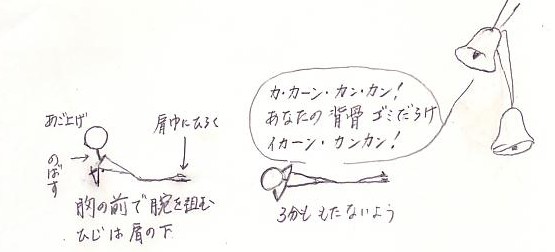 あご上げ
のばす
肩巾にひらく
胸の前で腕を組む
ひじは肩の下
カ・カーン・カン・カン!
あなたの背骨ゴミだらけ
イカーン・カンカン!
3分ももたないよう